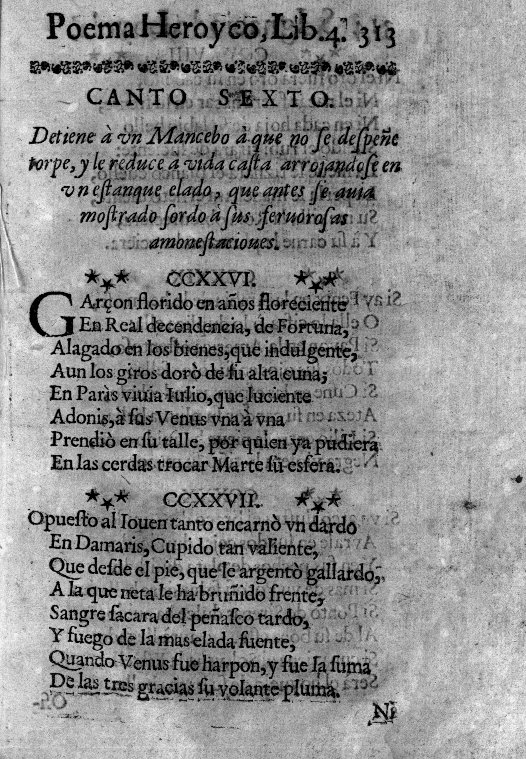 Poema Heroyco, Lib.4. 313
CANTO SEXTO.
Detiene à vn Mancebo à que no se despeñe
torpe, y le reduce a vida casta arrojandose en
vn estanque elado, que antes se auia
mostrado sordo à sus feruorosas
amonestaciones.
CCXXVI.
GArçon florido en años floreciente
En Real decendencia, de Fortuna,
Alagado en los bienes, que indulgente,
Aun los giros dorò de su alta cuna;
En Paris viuia Iulio, que luciente
Adonis, à sus Venus vna à vna
Prendiò en su talle, por quien ya pudiera
En las cerdas trocar Marte su esfera.
CCXXVII.
Opuesto al Iouen tanto encarnò vn dardo
En Damaris, Cupido tan valiente,
Que desde el pie, que le argentò gallardo,
A la que neta le ha bruñido frente,
Sangre sacara del peñasco tardo,
Y fuego de la mas elada fuente,
Quando Venus fue harpon, y fue la suma
De las tres gracias su volante pluma.
Ni